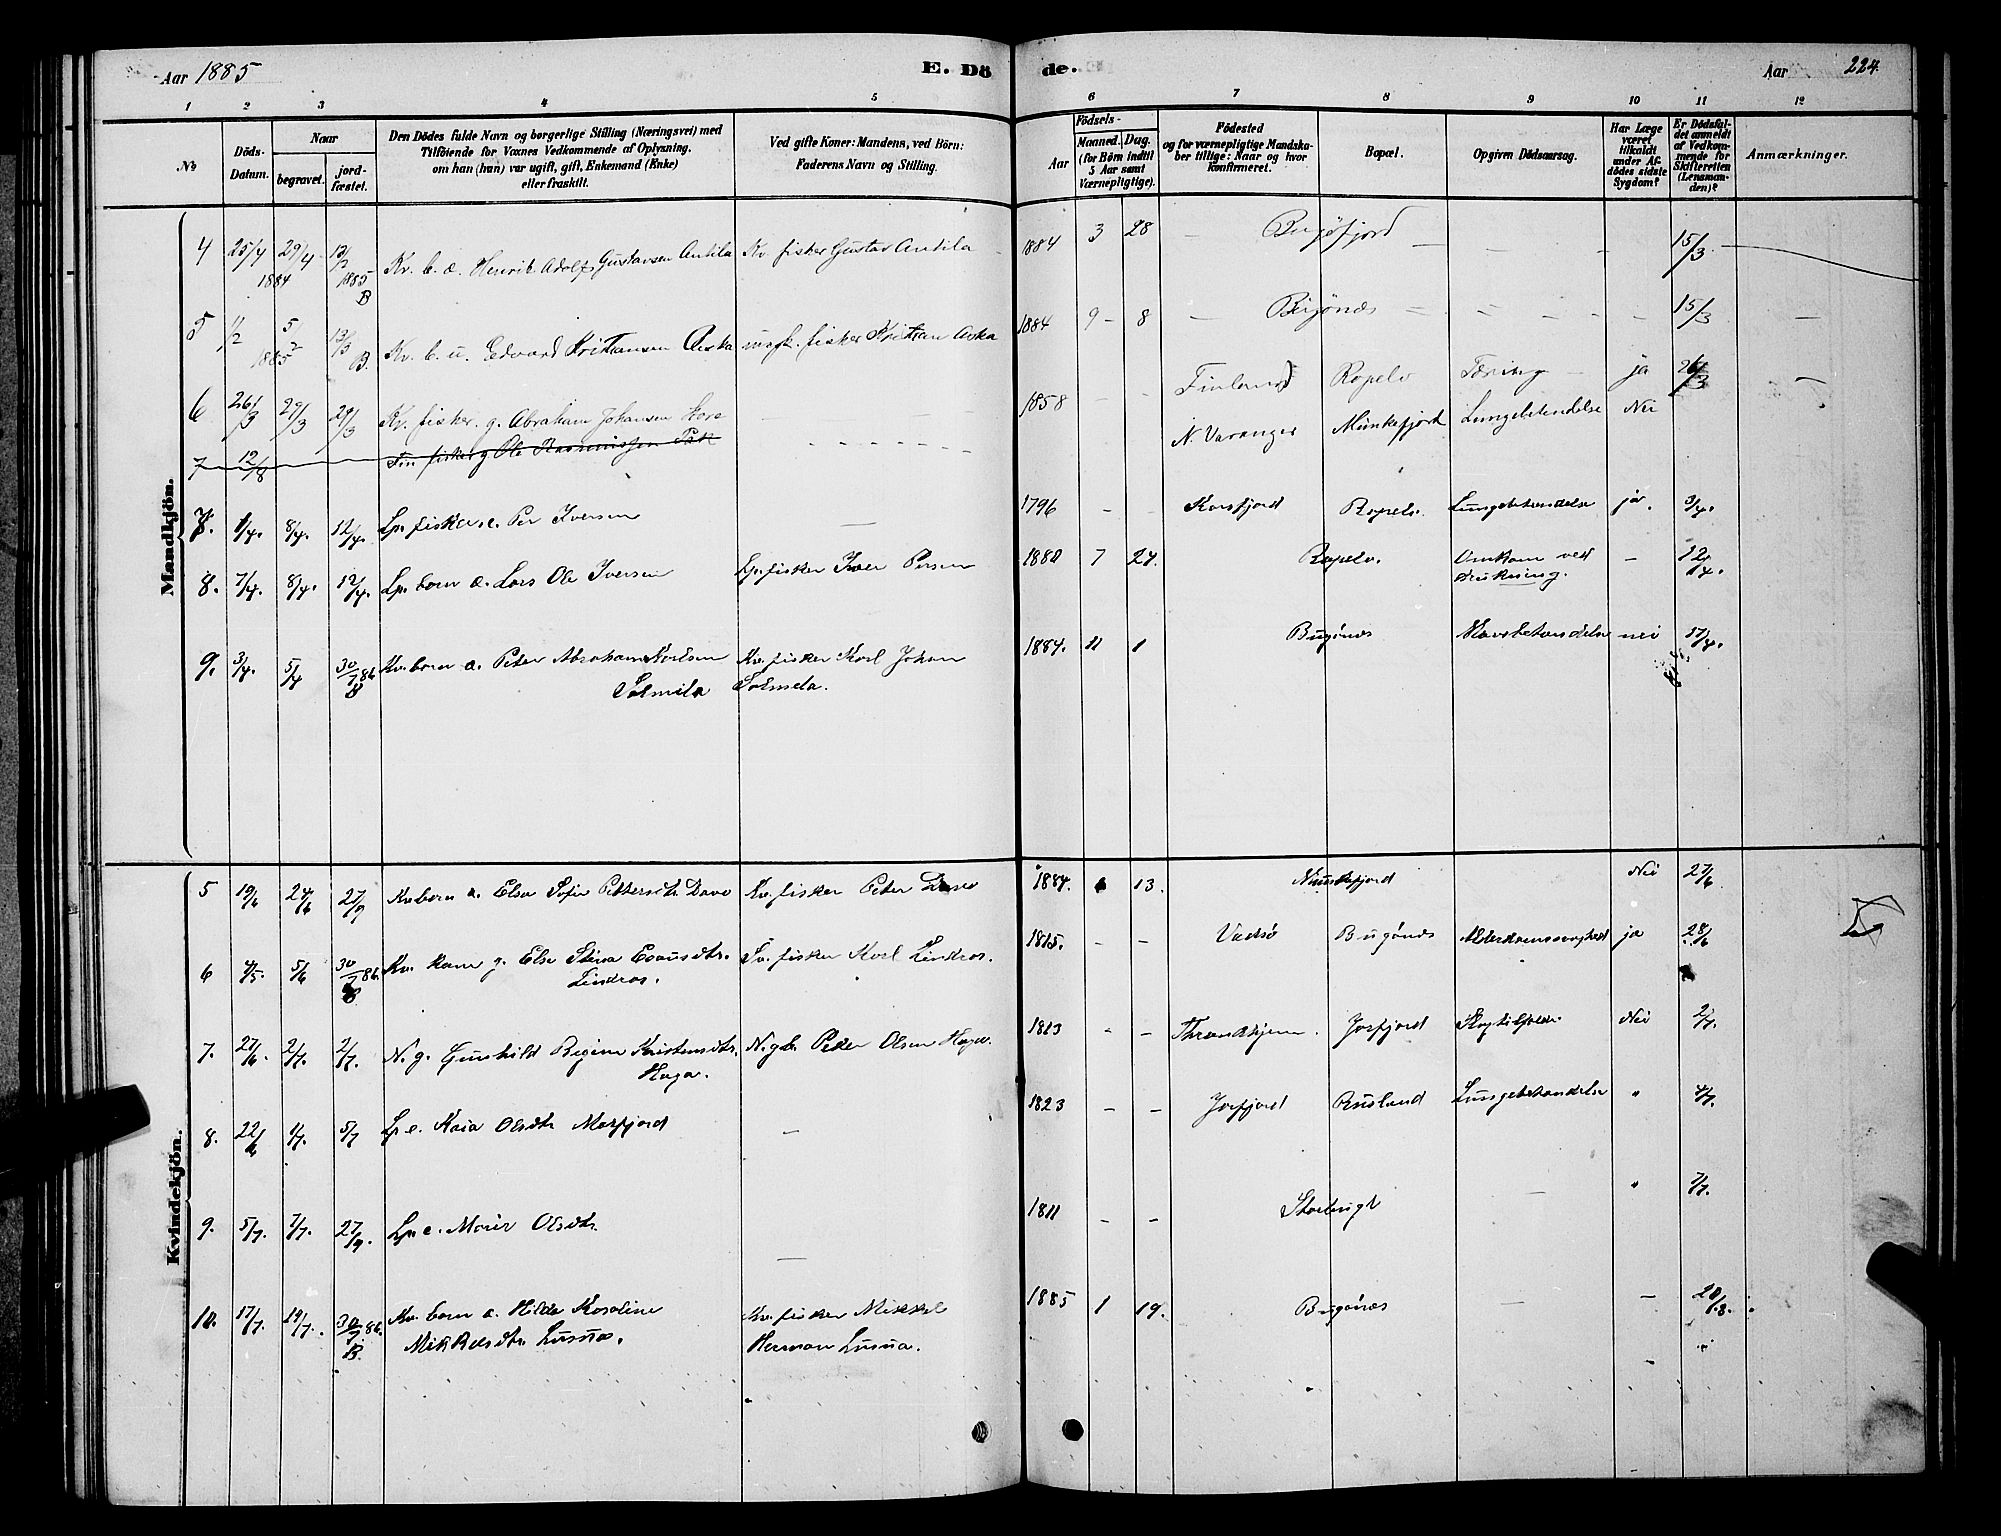 Aar 1885
E. Dö
de.
Aar 224.
1 2 3 4 5 6 7 8 9 10 11 12
№
Döds-
Datum.
Naar
begravet.
jord-
fæstet.
Den Dödes fulde Navn og borgerlige Stilling (Næringsvei) med
Tilföiende for Voxnes Vedkommende af Oplysning,
om han (hun) var ugift, gift, Enkemand (Enke)
eller fraskilt.
Ved gifte Koner: Mandens, ved Börn:
Faderens Navn og Stilling.
Födsels-
Aar
Maaned. Dag.
(for Börn indtil
5 Aar samt
Værnepligtige).
Födested
og for værnepligtige Mandska-
ber tillige: Naar og hvor
konfirmeret.
Bopæl.
Opgiven Dödsaarsag.
Har Læge
været
tilkaldt
under Af-
dödes sidste
Sygdom?
Er Dödsfal-
det anmeldt
af Vedkom-
mende for
Skifteretten
(Lensman-
den)?
Anmærkninger.
Mandkjön.
4 25/4 29/4 1884 13/3 1885 B Kv. b. æ. Henrik Adolf Gustavsen Antila Kv. fisker Gustav Antila 1884 3 28 Bugöfjord 15/3
5 1/2 5/2 1885 13/3 B. Kv. b. u. Edvard Kristiansen Aska fisker Kristian Aska 1884 9 8 Bugönæs 15/3
6 26/3 29/3 29/3 Kv. fisker g. Abraham Johansen 1858 Finland Ropelv Tæring ja 26/3
7 12/8 Fin fisker g Ole Rasmussen N. Varanger Munkefjord Lungebetendelse Nei
7. 1/4. 8/4. 12/4. Lp. fisker e. Per Iversen 1796 Korsfjord Ropelv. Lungebetændelse ja. 3/4.
8. 7/4. 8/4. 12/4. Lp. barn æ. Lars Ole Iversen Lp. fisker Iver Persen 1880 7 24. Ropelv. Omkom ved
drukning. 12/4.
9. 3/4. 5/4 30/7 86 B Kv. barn æ. Peter Abraham Karlsen
Solmila Kv. fisker Karl Johan
Solmela. 1884. 11 1 Bugönæs Halsbetændelse nei 17/4.
Kvindekjön.
5 19/6 24/6 27/9 Kv. barn æ. Else Sofie Pettersdtr. Kv. fisker Peter 1884. 13. Munkefjord Nei 27/6
6 4/5. 5/6 30/7 86. B Kv. kone g. Else Stina Esaiasdtr.
Lindros. Sv. fisker Karl Lindros. 1815. Vadsö Bugönæs Alderdomssvaghed ja 28/6
7. 27/6 2/7. 2/7. N. g. Gunhild Regine Kristensdtr.
Haga. N. gb. Peder Olsen Haga. 1813 Throndhjem. Jarfjord Nei 2/7.
8. 22/6 1/7. 5/7 Lp e. Kaia Olsdtr Masfjord 1823 Jarfjord Rusland Lungebetændelse " 4/7.
9. 5/7. 7/7. 27/9. Lp. e. Marie Olsdtr. 1811 Storbugt " 7/7.
10. 17/7. 19/7. 30/7 86. B. Kv. barn æ. Hilda Rosaline
Mikkelsdtr. Lusua. Kv. fisker Mikkel
Herman Lusua. 1885 1 19. Bugönæs 20/8.